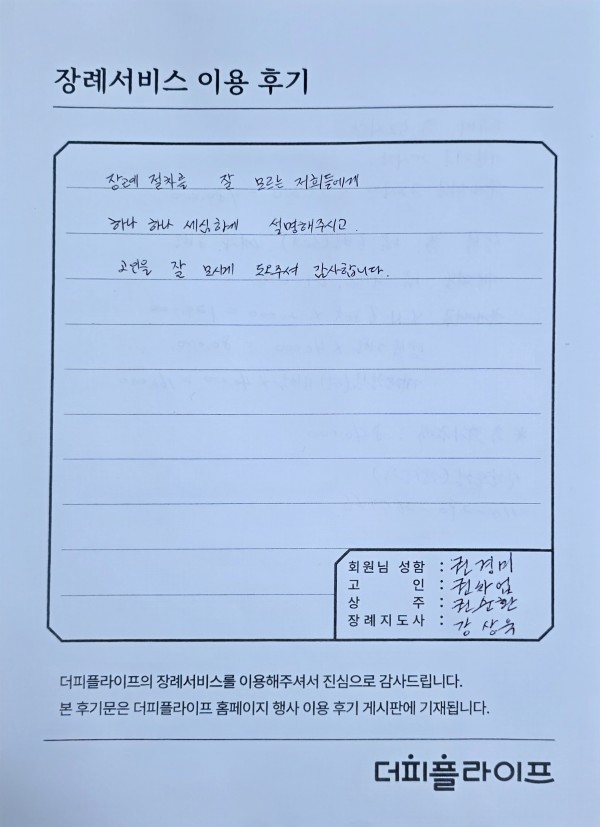 장례서비스 이용 후기
장례 절차를 잘 모르는 저희들에게
하나 하나 세심하게 설명해주시고.
고인을 잘 모시게 도와주셔 감사합니다.
회원님 성함 : 권경미
고 인 : 권
상 주 : 권순환
장례지도사 : 강상욱
더피플라이프의 장례서비스를 이용해주셔서 진심으로 감사드립니다.
본 후기문은 더피플라이프 홈페이지 행사 이용 후기 게시판에 기재됩니다.
더피플라이프